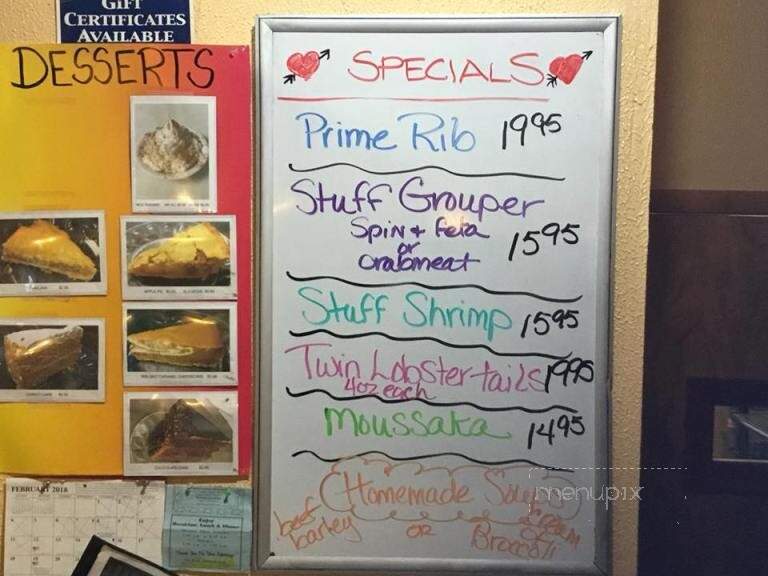 GIFT
CERTIFICATES
AVAILABLE
DESSERTS
SPECIALS
Prime Rib 19 95
Stuff Grouper
Spin + feta
or
crabmeat
15 95
Stuff Shrimp 15 95
Twin Lobster tails 19 95
4oz each
Moussaka 14 95
Homemade Soups
beef
barley
OR
cream
of
Broccoli
menupix
FEBRUARY 2018
Enjoy
Breakfast, Lunch & Dinner